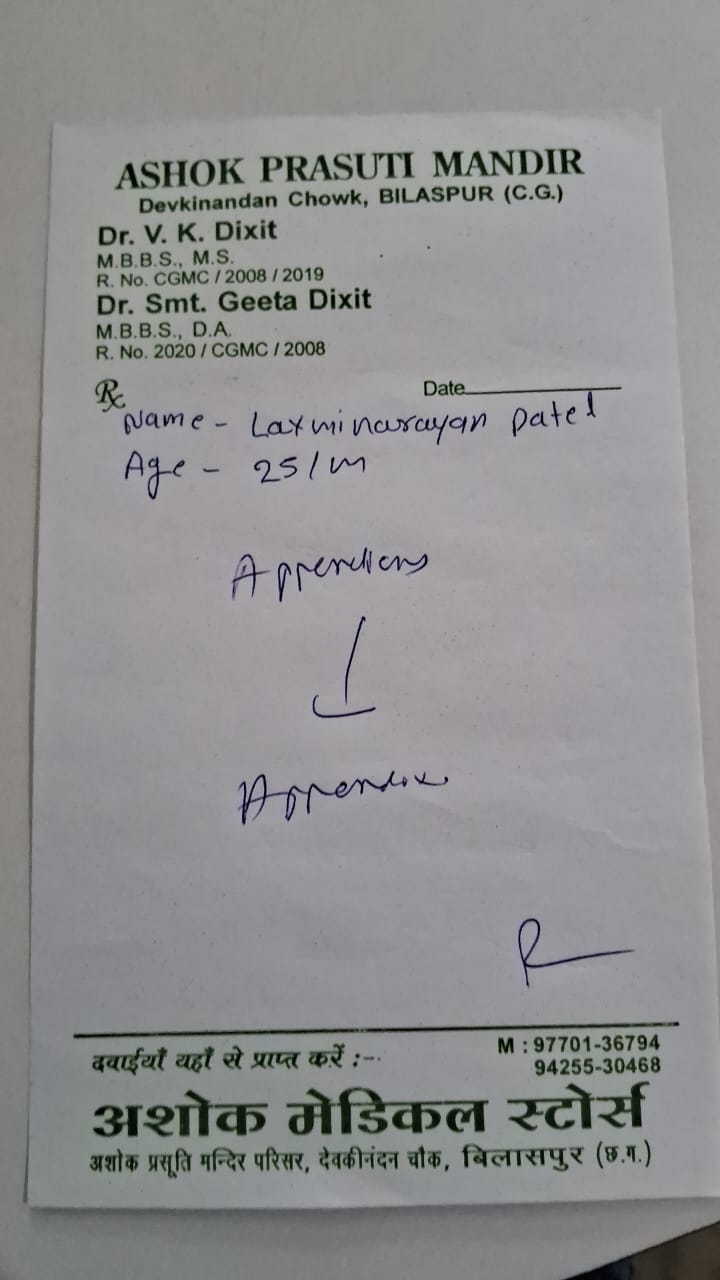 ASHOK PRASUTI MANDIR
Devkinandan Chowk, BILASPUR (C.G.)
Dr. V. K. Dixit
M.B.B.S., M.S.
R. No. CGMC / 2008 / 2019
Dr. Smt. Geeta Dixit
M.B.B.S., D.A.
R. No. 2020 / CGMC / 2008
Rx
Date
Name - Laxminarayan Patel
Age - 25/m
Appendix
दवाईयाँ यहाँ से प्राप्त करें :-
M : 97701-36794
94255-30468
अशोक मेडिकल स्टोर्स
अशोक प्रसूति मन्दिर परिसर, देवकीनंदन चौक, बिलासपुर (छ.ग.)